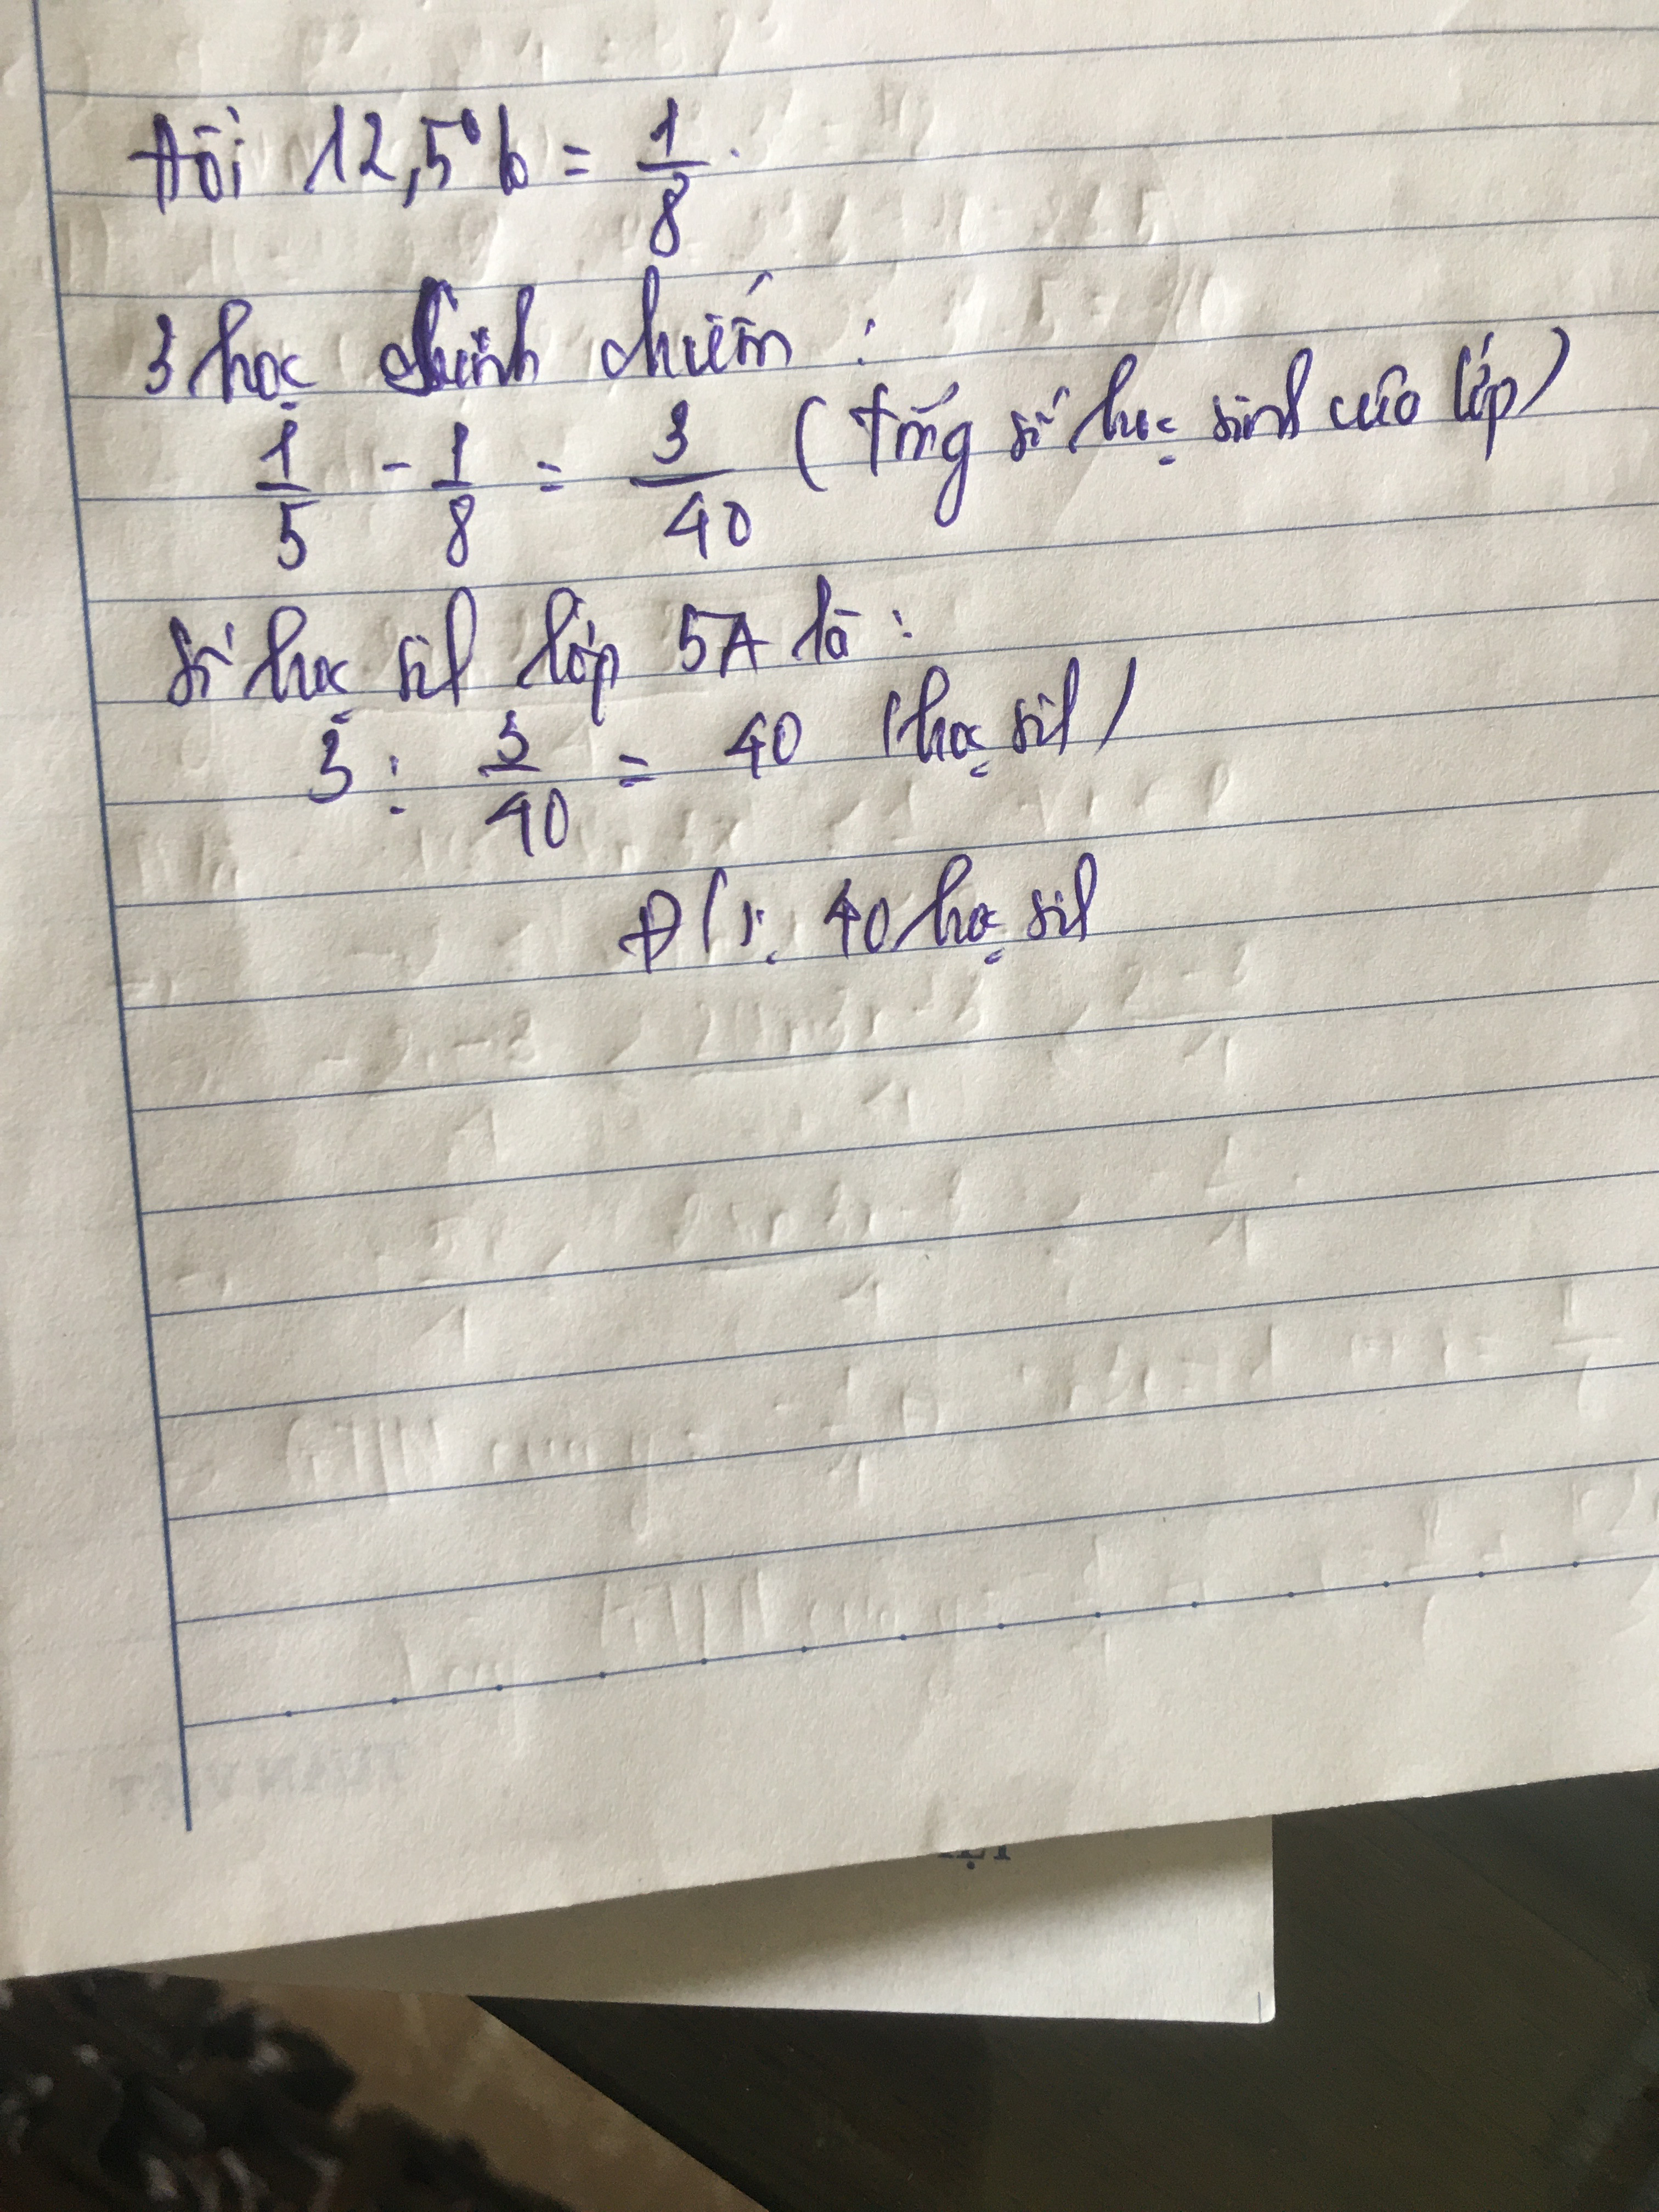 Đổi 12,5% = 1/8.
3 học sinh chiếm :
1/5 - 1/8 = 3/40 (tổng số học sinh của lớp)
số học sih lớp 5A là :
3 : 3/40 = 40 (học sih)
Đ/s: 40 học sih
TUẤN VIỆT